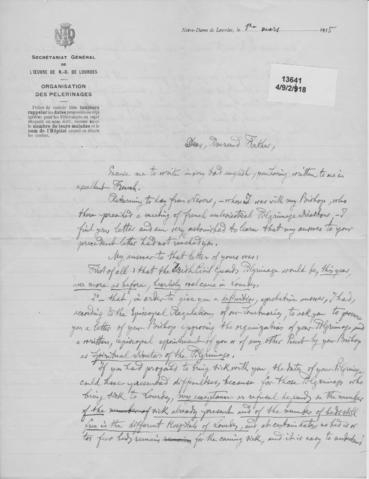 Notre-Dame de Lourdes, le 1er mars 1915
SECRÉTARIAT GÉNÉRAL
DE
L'ŒUVRE DE N.-D. DE LOURDES
ORGANISATION
DES PÈLERINAGES
13641
4/9/2/918
Prière de vouloir bien toujours
rappeler les dates
nombre de leurs malades et le
nom de l'Hôpital
Dear, Reverend Father,
Excuse me to write in very bad english, receiving, written to me in
excellent French.
Returning to day from Nevers, – where I was with my Bishop, who
there presided a meeting of french Pilgrimage directors, – I
find your letter and am very astonished to learn that my answer to your
precedent letter had not reached you.
My answer to that letter of yours was:
First of all: that the Guards Pilgrimage would be, this year,
once more as before, heartily welcome in Lourdes.
2° – that, in order to give you a definitive, answer, I had,
according to the Episcopal Regulation of our Sanctuaries, to ask you to procure
you a letter of your Bishop approving the organization of your Pilgrimage and
a written, episcopal appointment of you or of any other Priest by your Bishop
as Spiritual Director of the Pilgrimage.
If you had proposed to bring sick with you the date of your Pilgrimage
could have difficulties, because for those Pilgrimages who
bring sick to Lourdes, my acceptance or refusal depends on the number
of the sick already present and of the number of beds still
free in the different Hospitals of Lourdes, and at certain dates no bed is or
too few beds remain for the coming sick, and it is easy to understand